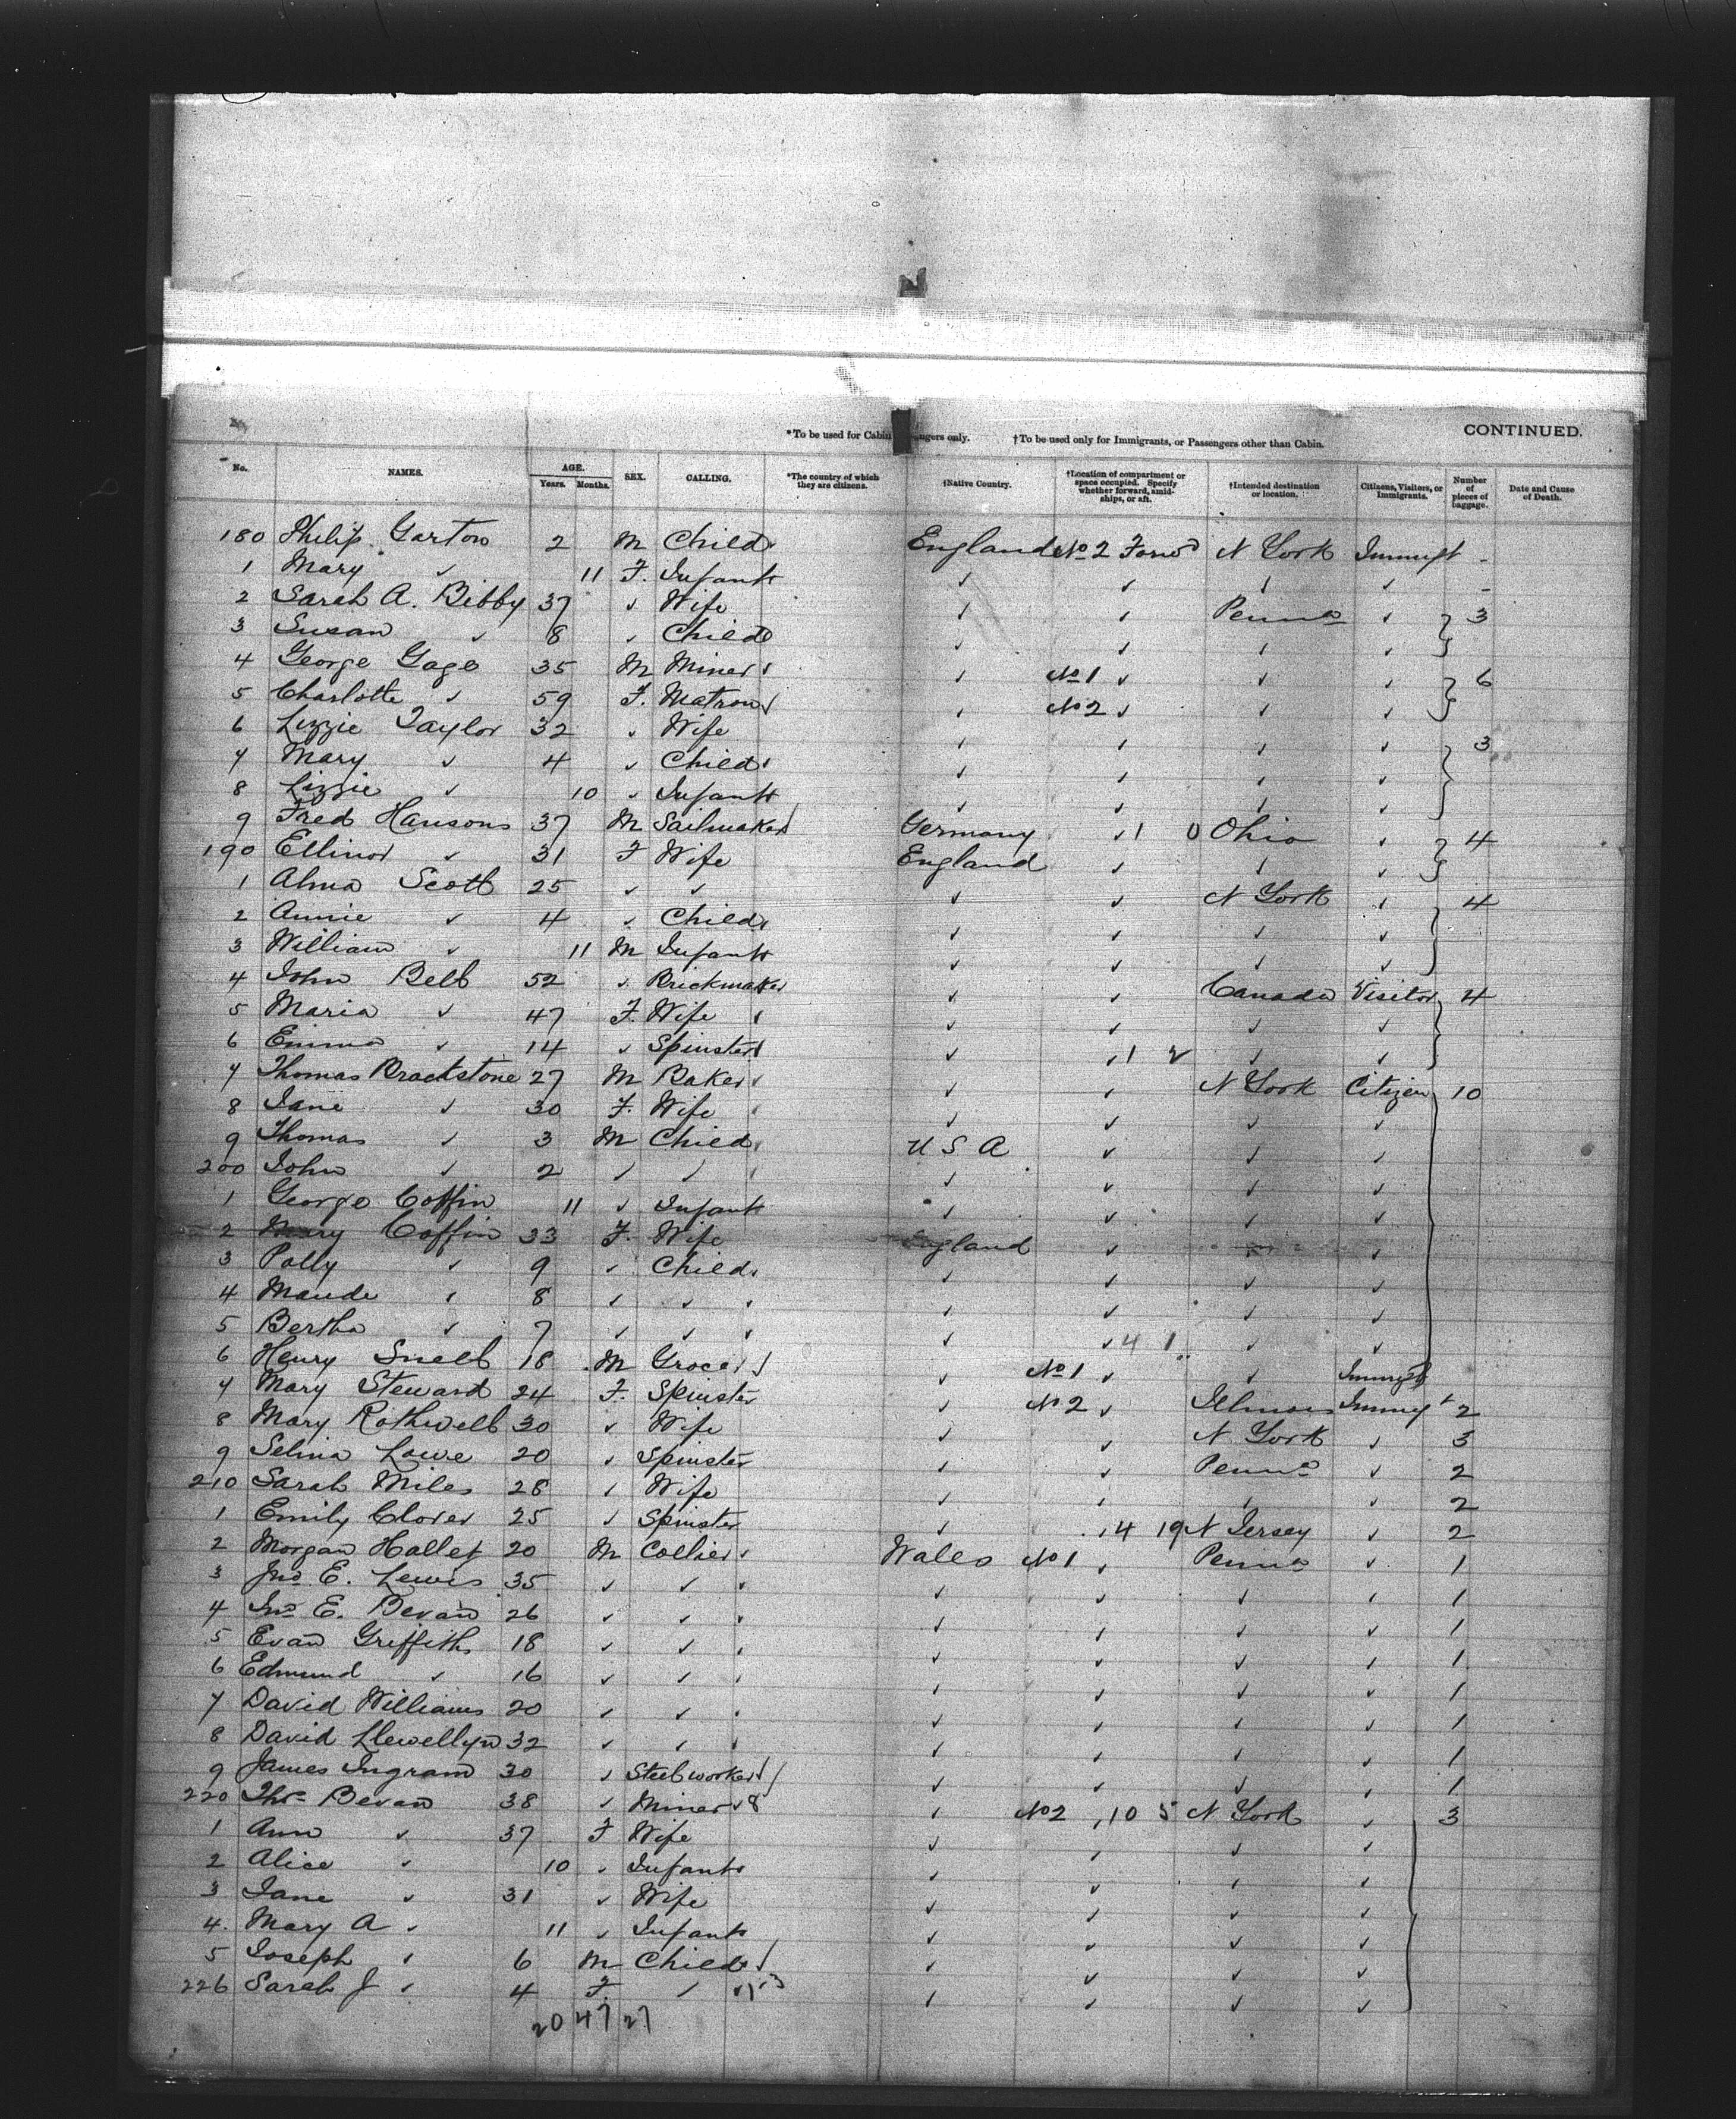 *To be used for Cabin ngers only. †To be used only for Immigrants, or Passengers other than Cabin. CONTINUED.
No. NAMES. AGE. Years. Months. SEX. CALLING. *The country of which they are citizens. †Native Country. †Location of compartment or space occupied. Specify whether forward, amidships, or aft. †Intended destination or location. Citizens, Visitors, or Immigrants. Number of pieces of baggage. Date and Cause of Death.
180 Philip Garton 2 M Child England No 2 Forwd N York Immigt -
1 Mary ✓ 11 F. Infant ✓ ✓ ✓ ✓ -
2 Sarah A. Bibby 37 ✓ Wife ✓ ✓ Penna ✓ 3
3 Susan ✓ 8 ✓ Child ✓ ✓ ✓ ✓
4 George Gage 35 M Miner ✓ No 1 ✓ ✓ ✓ 6
5 Charlotte ✓ 59 F. Matron ✓ No 2 ✓ ✓ ✓
6 Lizzie Taylor 32 ✓ Wife ✓ ✓ ✓ ✓ 3
7 Mary ✓ 4 ✓ Child ✓ ✓ ✓ ✓
8 Lizzie ✓ 10 ✓ Infant ✓ ✓ ✓ ✓
9 Fred Hansons 37 M Sailmaker Germany ✓ 1 0 Ohio ✓ 4
190 Ellinor ✓ 31 F Wife England ✓ ✓ ✓
1 Alma Scott 25 ✓ ✓ ✓ ✓ N York ✓ 4
2 Annie ✓ 4 ✓ Child ✓ ✓ ✓ ✓
3 William ✓ 11 M Infant ✓ ✓ ✓ ✓
4 John Bell 52 ✓ Brickmaker ✓ ✓ Canada Visitor 4
5 Maria ✓ 47 F. Wife ✓ ✓ ✓ ✓
6 Emma ✓ 14 ✓ Spinster ✓ ✓ 1 2 ✓ ✓
7 Thomas Brackstone 27 M Baker ✓ ✓ N York Citizen 10
8 Jane ✓ 30 F. Wife ✓ ✓ ✓ ✓
9 Thomas ✓ 3 M Child U S A ✓ ✓ ✓
200 John ✓ 2 ✓ ✓ ✓ ✓ ✓ ✓
1 George Coffin 11 ✓ Infant ✓ ✓ ✓ ✓
2 Mary Coffin 33 F. Wife England ✓ ✓ ✓
3 Polly ✓ 9 ✓ Child ✓ ✓ ✓ ✓
4 Maude ✓ 8 ✓ ✓ ✓ ✓ ✓ ✓
5 Bertha ✓ 7 ✓ ✓ ✓ ✓ 4 1 ✓ ✓
6 Henry Snell 18 M Grocer ✓ No 1 ✓ ✓ Immigt
7 Mary Steward 24 F. Spinster ✓ No 2 ✓ Illinois Immigt 2
8 Mary Rothwell 30 ✓ Wife ✓ ✓ N York ✓ 3
9 Selina Lowe 20 ✓ Spinster ✓ ✓ Penna ✓ 2
210 Sarah Miles 28 ✓ Wife ✓ ✓ ✓ ✓ 2
1 Emily Clover 25 ✓ Spinster ✓ ✓ 4 19 N Jersey ✓ 2
2 Morgan Hallet 20 M Collier Wales No 1 ✓ Penna ✓ 1
3 Jno E. Lewis 35 ✓ ✓ ✓ ✓ ✓ ✓ 1
4 Jno E. Bevan 26 ✓ ✓ ✓ ✓ ✓ ✓ 1
5 Evan Griffith 18 ✓ ✓ ✓ ✓ ✓ ✓ 1
6 Edmund ✓ 16 ✓ ✓ ✓ ✓ ✓ ✓ 1
7 David Williams 20 ✓ ✓ ✓ ✓ ✓ ✓ 1
8 David Llewellyn 32 ✓ ✓ ✓ ✓ ✓ ✓ 1
9 James Ingram 30 ✓ Steelworker ✓ ✓ ✓ ✓ 1
220 Thos Bevan 38 ✓ Miner 8 ✓ No 2 ✓ 10 5 N York ✓ 3
1 Ann ✓ 37 F Wife ✓ ✓ ✓ ✓
2 Alice ✓ 10 ✓ Infant ✓ ✓ ✓ ✓
3 Jane ✓ 31 ✓ Wife ✓ ✓ ✓ ✓
4. Mary A ✓ 11 ✓ Infant ✓ ✓ ✓ ✓
5 Joseph ✓ 6 M Child ✓ ✓ ✓ ✓
226 Sarah J ✓ 4 F. ✓ ✓ ✓ ✓ ✓
20 47 27